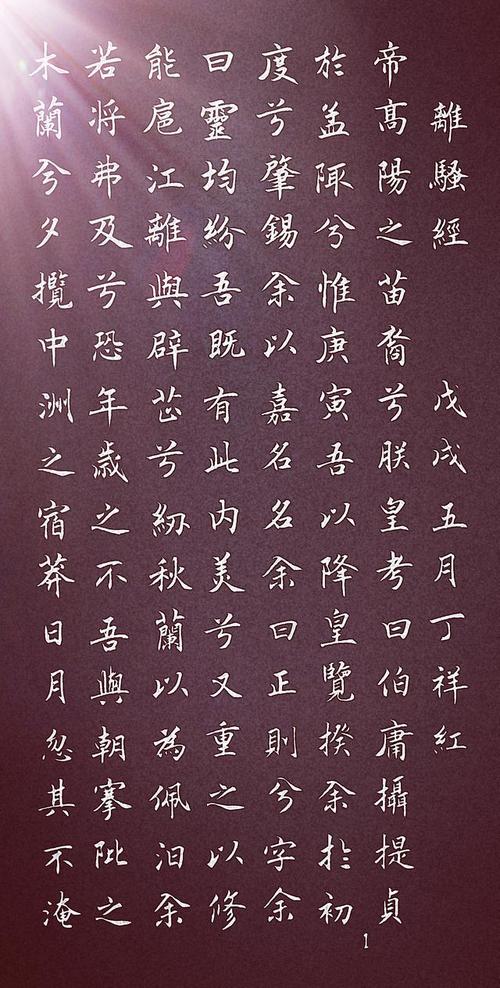 離騷經 戊戌五月丁祥紅
帝高陽之苗裔兮朕皇考曰伯庸攝提貞
於孟陬兮惟庚寅吾以降皇覽揆余於初
度兮肇錫余以嘉名名余曰正則兮字余
曰靈均紛吾既有此内美兮又重之以修
能扈江離與辟芷兮紉秋蘭以為佩汩余
若將弗及兮恐年歳之不吾與朝搴阰之
木蘭兮夕攬中洲之宿莽日月忽其不淹
1